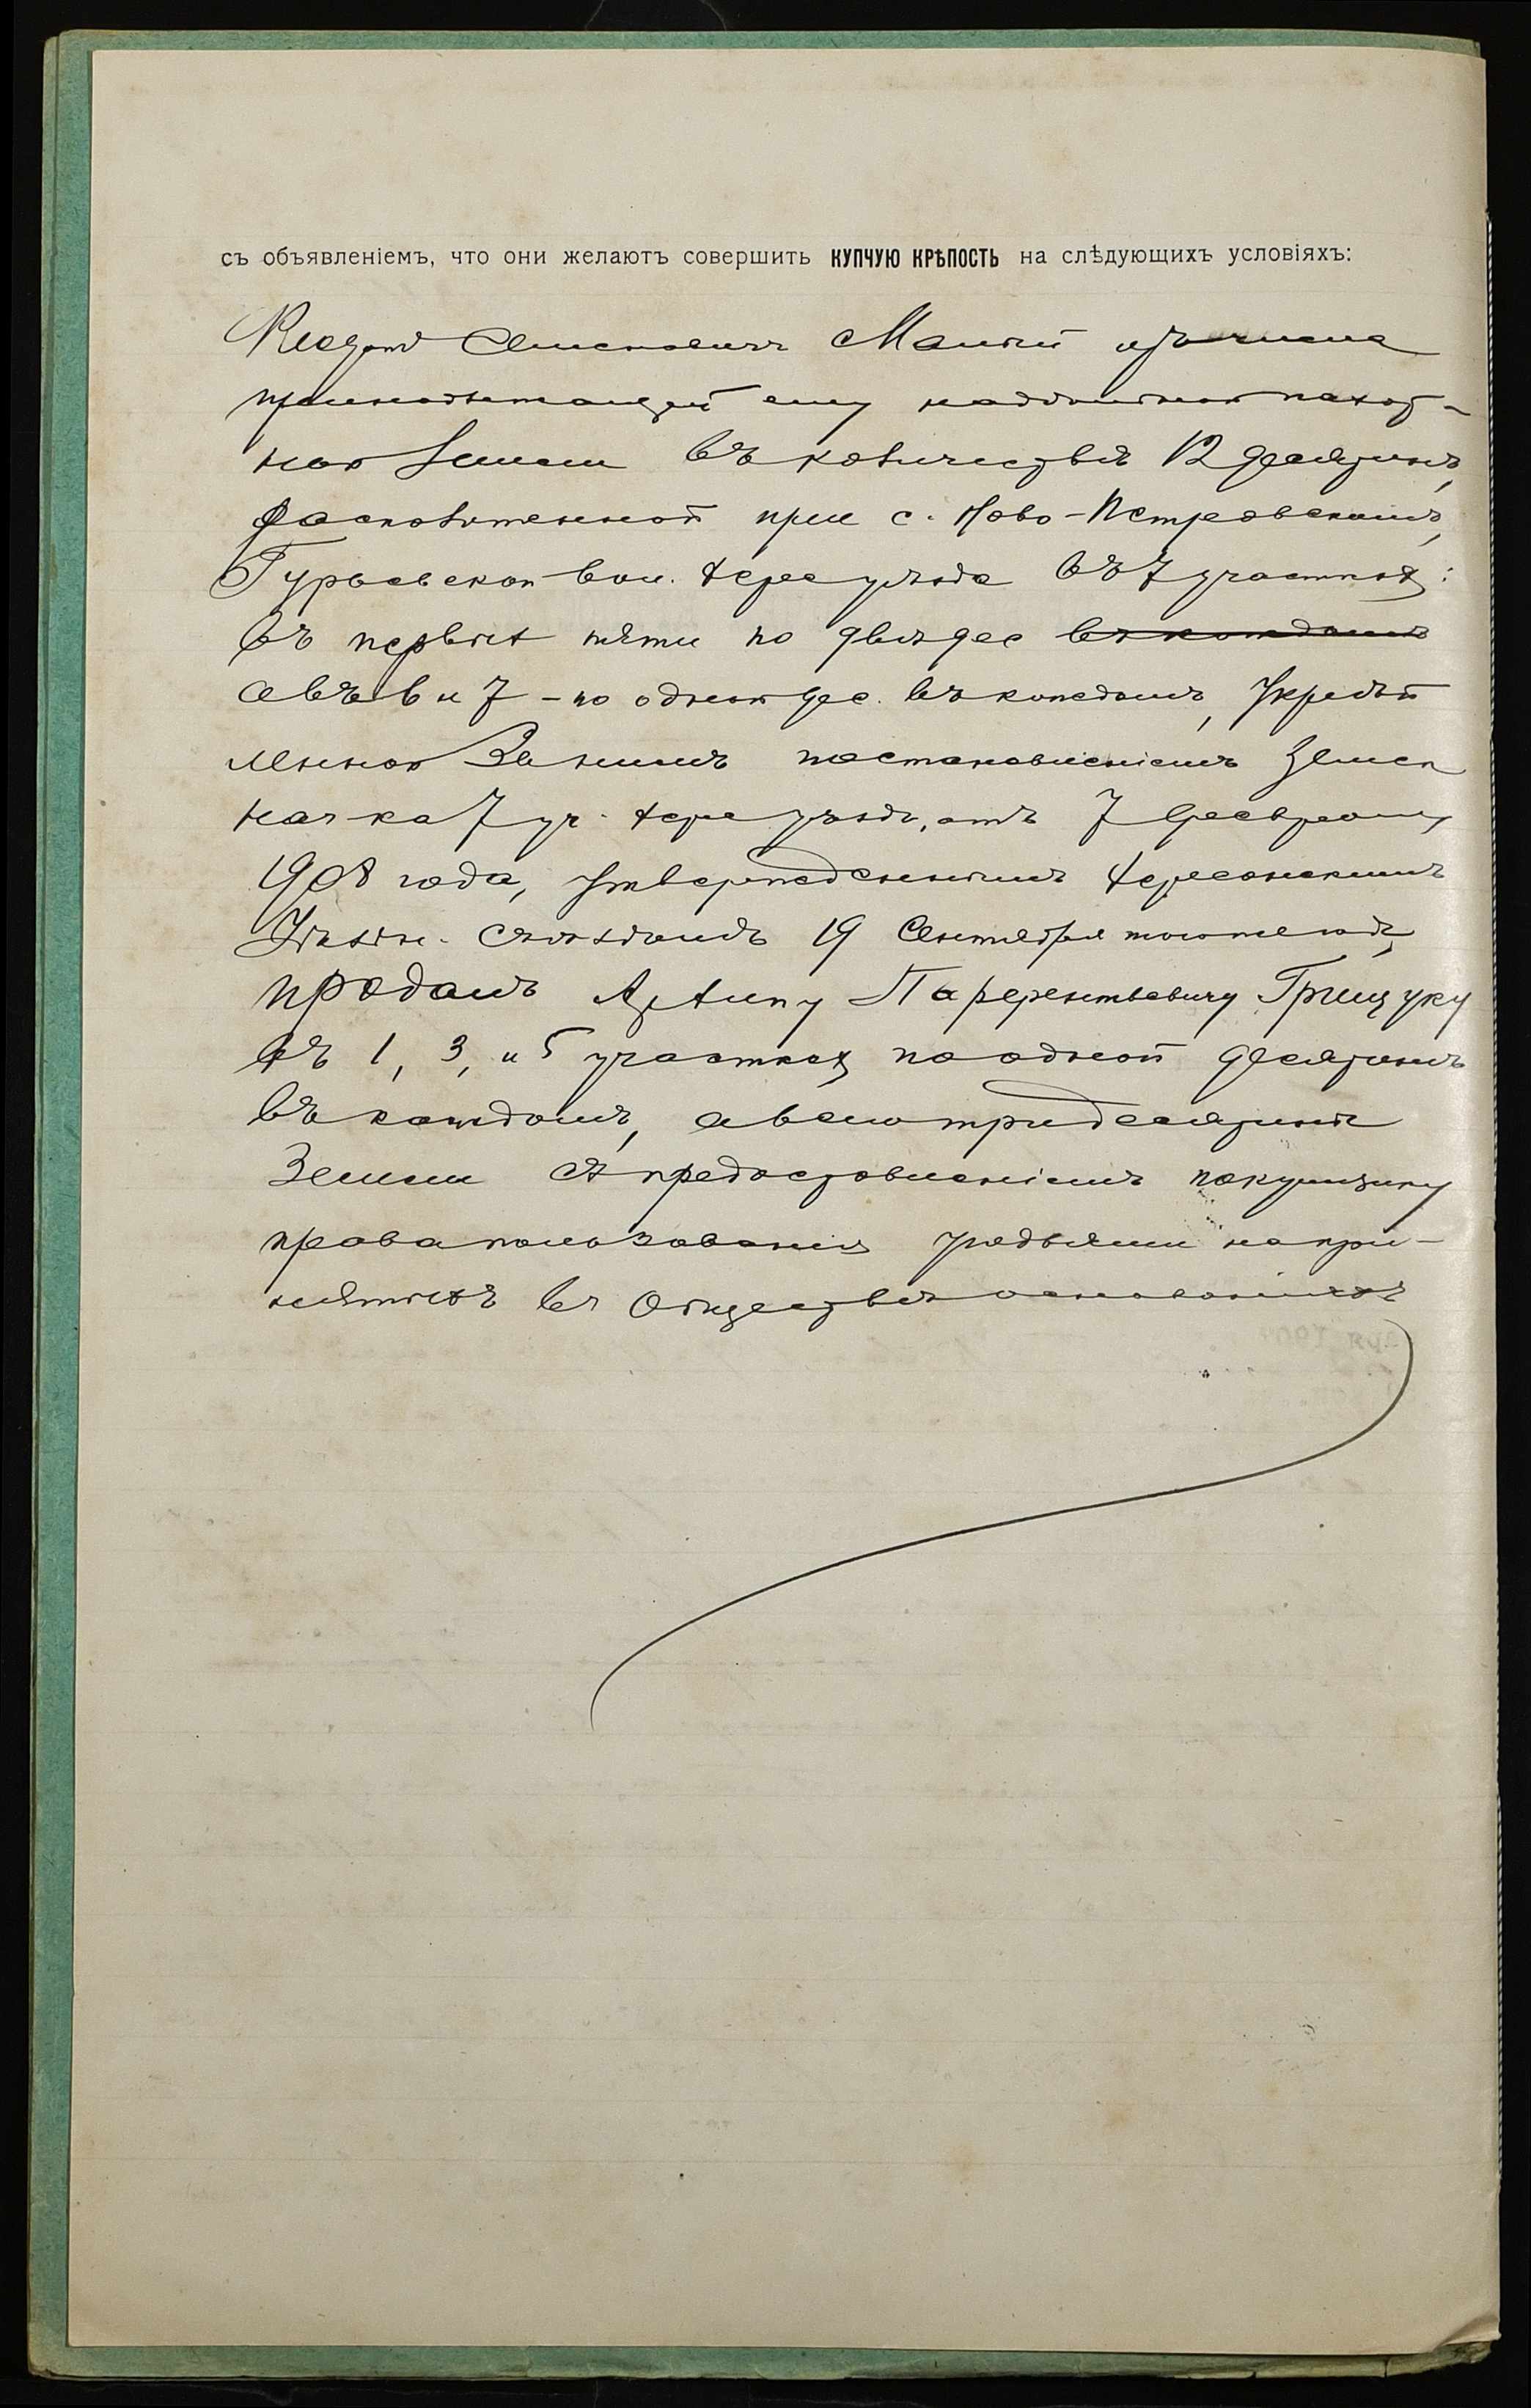 съ объявленіемъ, что они желаютъ совершить КУПЧУЮ КРѢПОСТЬ на слѣдующихъ условіяхъ:
Малый изъ числа
принадлежащей ему надѣльной пахат-
ной земли въ количествѣ 12 десятинъ,
расположенной при с. Ново-Петровскомъ,
Гурьевской вол. Херс уѣзда въ 7 участках:
въ первых пяти по двѣ дес въ каждомъ
а въ 6 и 7 - по одной дес. въ каждомъ, Укрѣп
ленной За нимъ постановленіемъ Земск
нач-ка 7 уч. Херс уѣзда, отъ 7 Февраля
1908 года, утвержденнымъ Херсонскимъ
Уѣздн. Съѣздомъ 19 Сентября того же года,
продалъ Архипу Парфентьевичу Грищуку
въ 1, 3, и 5 участках по одной десятинѣ
въ каждомъ, а всего три десятины
Земли съ предоставленіемъ покупщику
права пользованія угодьями на при-
нятыхъ въ Обществѣ основаніяхъ